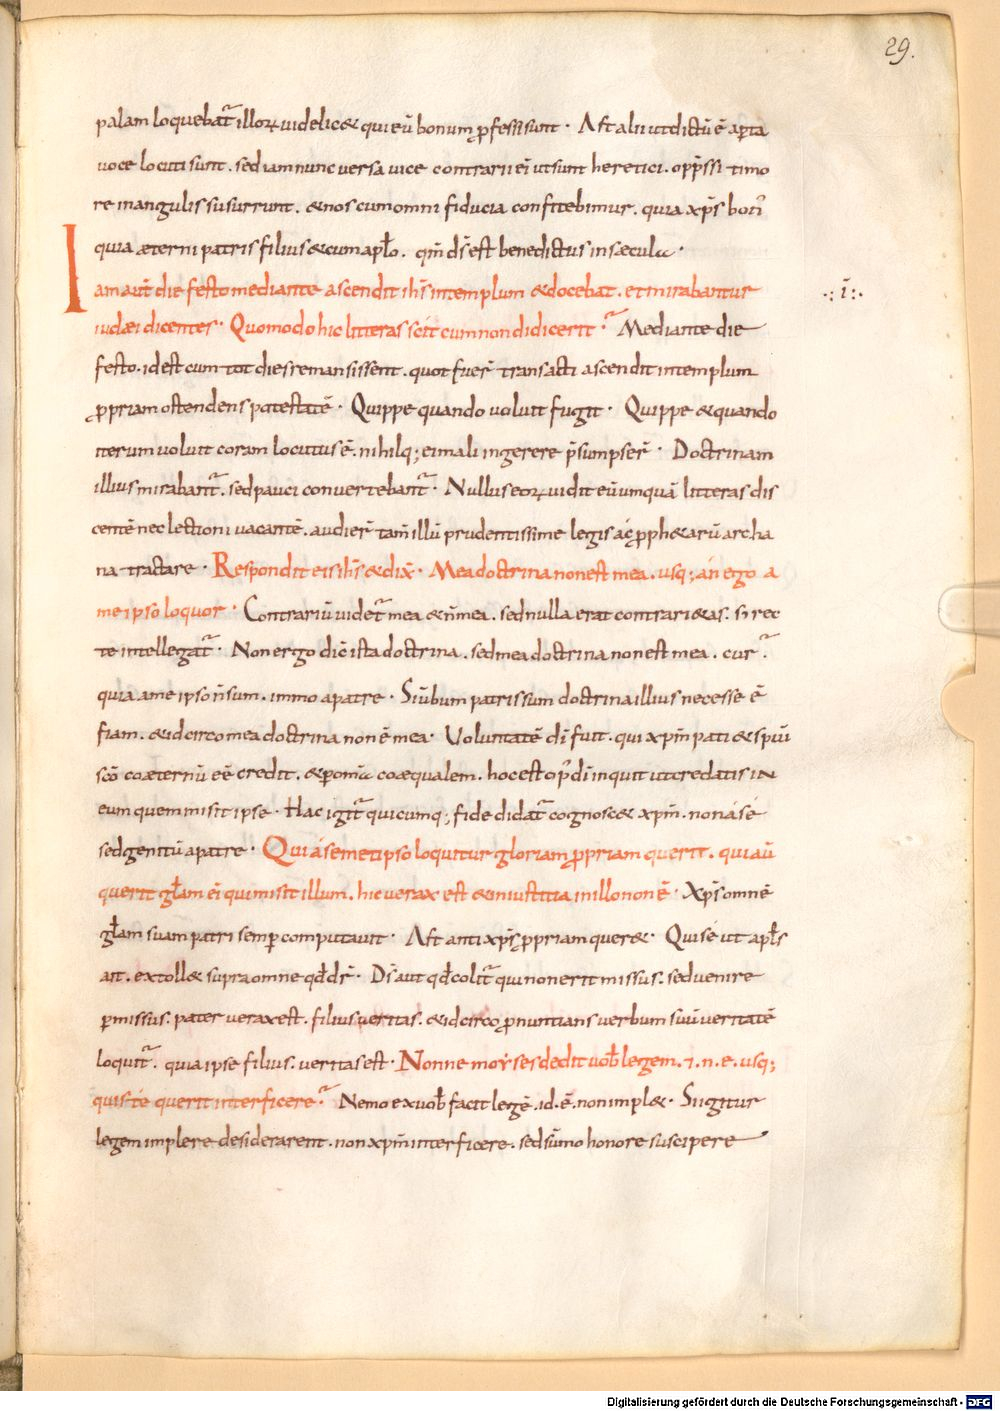 29.
palam loquebat᷑ illoꝝ uidelic& qui eū bonum ꝓfessi sunt · Ast alii ut dictū ē aꝑta
uoce locuti sunt . sed iam nunc uersa uice contrarii ei ut sunt heretici . opp̄ssi timo
re in angulis susurrunt . &nos cum omni fiducia confitebimur . quia xp̄s
quia æterni patris filius & cum apło . qm̄ ds̄ est benedictus in sæcula ·
Iam aut̄ die festo mediante ascendit ihs̄ in templum &docebat . et mirabantur
·:ī:·
iudæi dicentes · Quomodo hic litteras scit cum non didicerit · Mediante die
festo . id est cum tot dies remansissent . quot fuer̄ transacti ascendit in templum
ꝓpriam ostendens potestatē · Quippe quando uoluit fugit · Quippe &quando
iterum uoluit coram locutus ē . nihilq; ei mali ingerere p̄sumpser̄ · Doctrinam
illius mirabant᷑ . sed pauci conuertebant᷑ · Nullus eoꝝ uidit eū umquā litteras dis
centē nec lectioni uacantē . audier̄ tam̄ illū prudentissime legis ac ꝓph&arū archa
na tractare · Respondit eis ihs̄ &dix̄ · Mea doctrina non est mea . usq; an ego a
me ipso loquor · Contrariū uidet᷑ mea &n̄ mea . sed nulla erat contrari&as . si rec
te intellegat᷑ · Non ergo dic̄ ista doctrina . sed mea doctrina non est mea . cur ·
quia a me ipso n̄ sum . immo a patre · Si ūbum patris sum doctrina illius necesse ē
fiam . &idcirco mea doctrina non ē mea · Voluntatē dī fuit . qui xp̄m pati & sp̄m
scō coæternū eē credit . &ꝑ omnia coæqualem . hoc est op̄ dī inquit ut credatis in
eum quem misit ipse · Hac igit᷑ quicumq; fide didat᷑ cognosc& xp̄m . non a se
sed genitū a patre · Qui a semetipso loquitur gloriam ꝓpriam querit . qui aū
querit głam ei qui misit illum . hic uerax est &iniustitia in illo non ē · Xp̄s omnē
głam suam patri semꝑ computauit · Ast antixp̄s ꝓpriam quer& · Qui se ut apłs
ait . extoll& supra omne qd̄ dr̄ · Ds̄ aut qd̄ colit᷑ qui non erit missus . sed uenire
ꝑmissus . pater uerax est . filius ueritas . &idcirco ꝓnuntians uerbum suū ueritatē
loquit᷑ . quia ipse filius . ueritas est · Nonne moyses dedit uob̄ legem . 7 . n . e . usq;
quis te querit interficere · Nemo ex uob̄ facit legē . id . ē . non impl& · Si igitur
legem implere desiderarent . non xp̄m interficere . sed sūmo honore suscipere
Digitalisierung gefördert durch die Deutsche Forschungsgemeinschaft - DFG